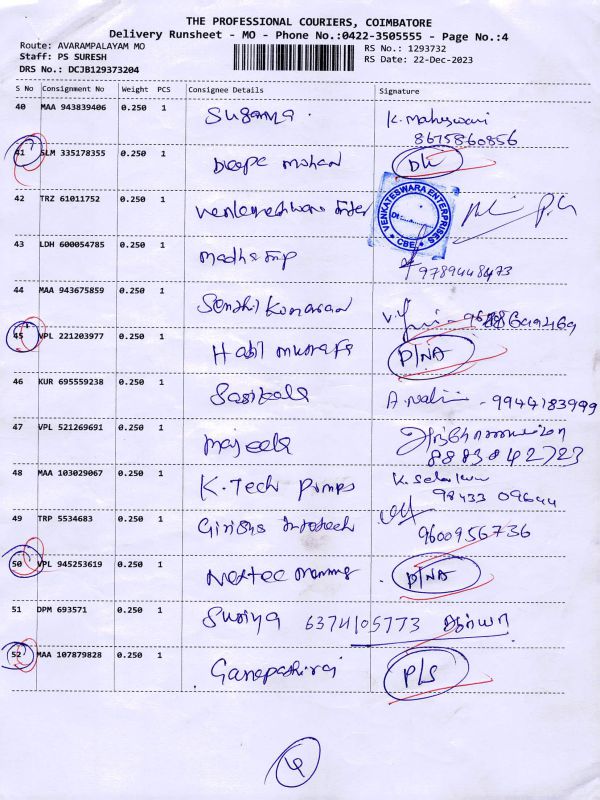 THE PROFESSIONAL COURIERS, COIMBATORE
Delivery Runsheet - MO - Phone No.:0422-3505555 - Page No.:4
Route: AVARAMPALAYAM MO
RS No.: 1293732
Staff: PS SURESH
RS Date: 22-Dec-2023
DRS No.: DCJB129373204
S No Consignment No Weight PCS Consignee Details Signature
40 MAA 943839406 0.250 1 Suganya. K. Maheswari
8675860856
41 SLM 335178355 0.250 1 Deepa mohan DL
42 TRZ 61011752 0.250 1 VENKATESWARA ENTERPRISES CBE
43 LDH 600054785 0.250 1 9789448473
44 MAA 943675859 0.250 1 Senthil Kumaran
45 VPL 221203977 0.250 1 P/NA
46 KUR 695559238 0.250 1 Sasikala - 9944183999
47 VPL 521269691 0.250 1 Majeeda
8883042723
48 MAA 103029067 0.250 1 K. Tech Pumps
98433 09644
49 TRP 5534683 0.250 1 9600956736
50 VPL 945253619 0.250 1 P/NA
51 DPM 693571 0.250 1 Suriya 6374105773
52 MAA 107879828 0.250 1 P/S
4